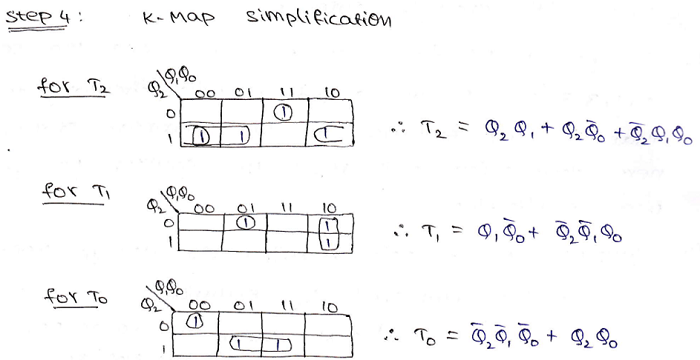 Step 4 : K-Map Simplification
for T2
Q2 Q1Q0 00 01 11 10
0 1
1 1 1 1
∴ T2 = Q2 Q1 + Q2 Q̄0 + Q̄2 Q1 Q0
for T1
Q2 Q1Q0 00 01 11 10
0 1 1
1 1
∴ T1 = Q1 Q̄0 + Q̄2 Q̄1 Q0
for T0
Q2 Q1Q0 00 01 11 10
0 1
1 1 1
∴ T0 = Q̄2 Q̄1 Q̄0 + Q2 Q0